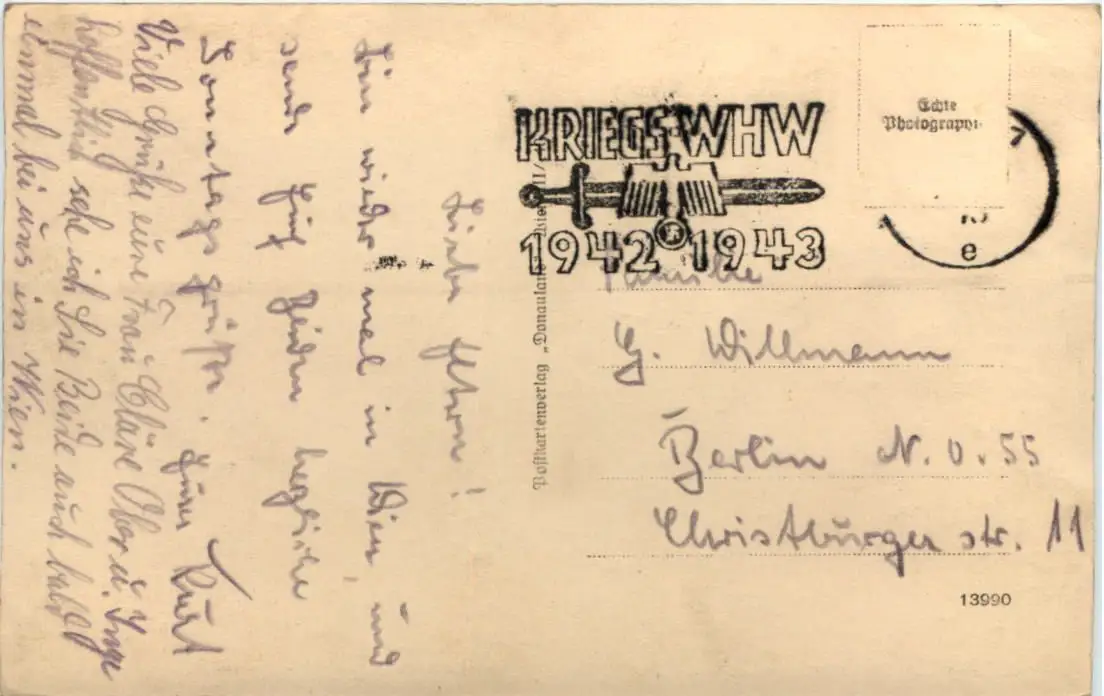 Liebe Eltern!
Bin wieder mal in Wien und
sende Euch beiden herzliche
Sonntagsgrüße. Euer Kurt
Viele Grüße eure Frau Cläre Ober u. Inge
hoffentlich sehe ich Sie Beide auch bald
einmal bei uns in Wien.
Postkartenverlag „Donauland“
KRIEGS-WHW
1942 1943
Echte
Photographie
e
Familie
G. Willmann
Berlin N.O. 55
Christburger str. 11
13990